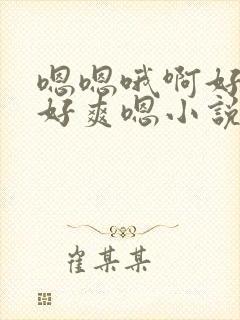 嗯嗯哦啊好
好爽嗯小说
崔某某